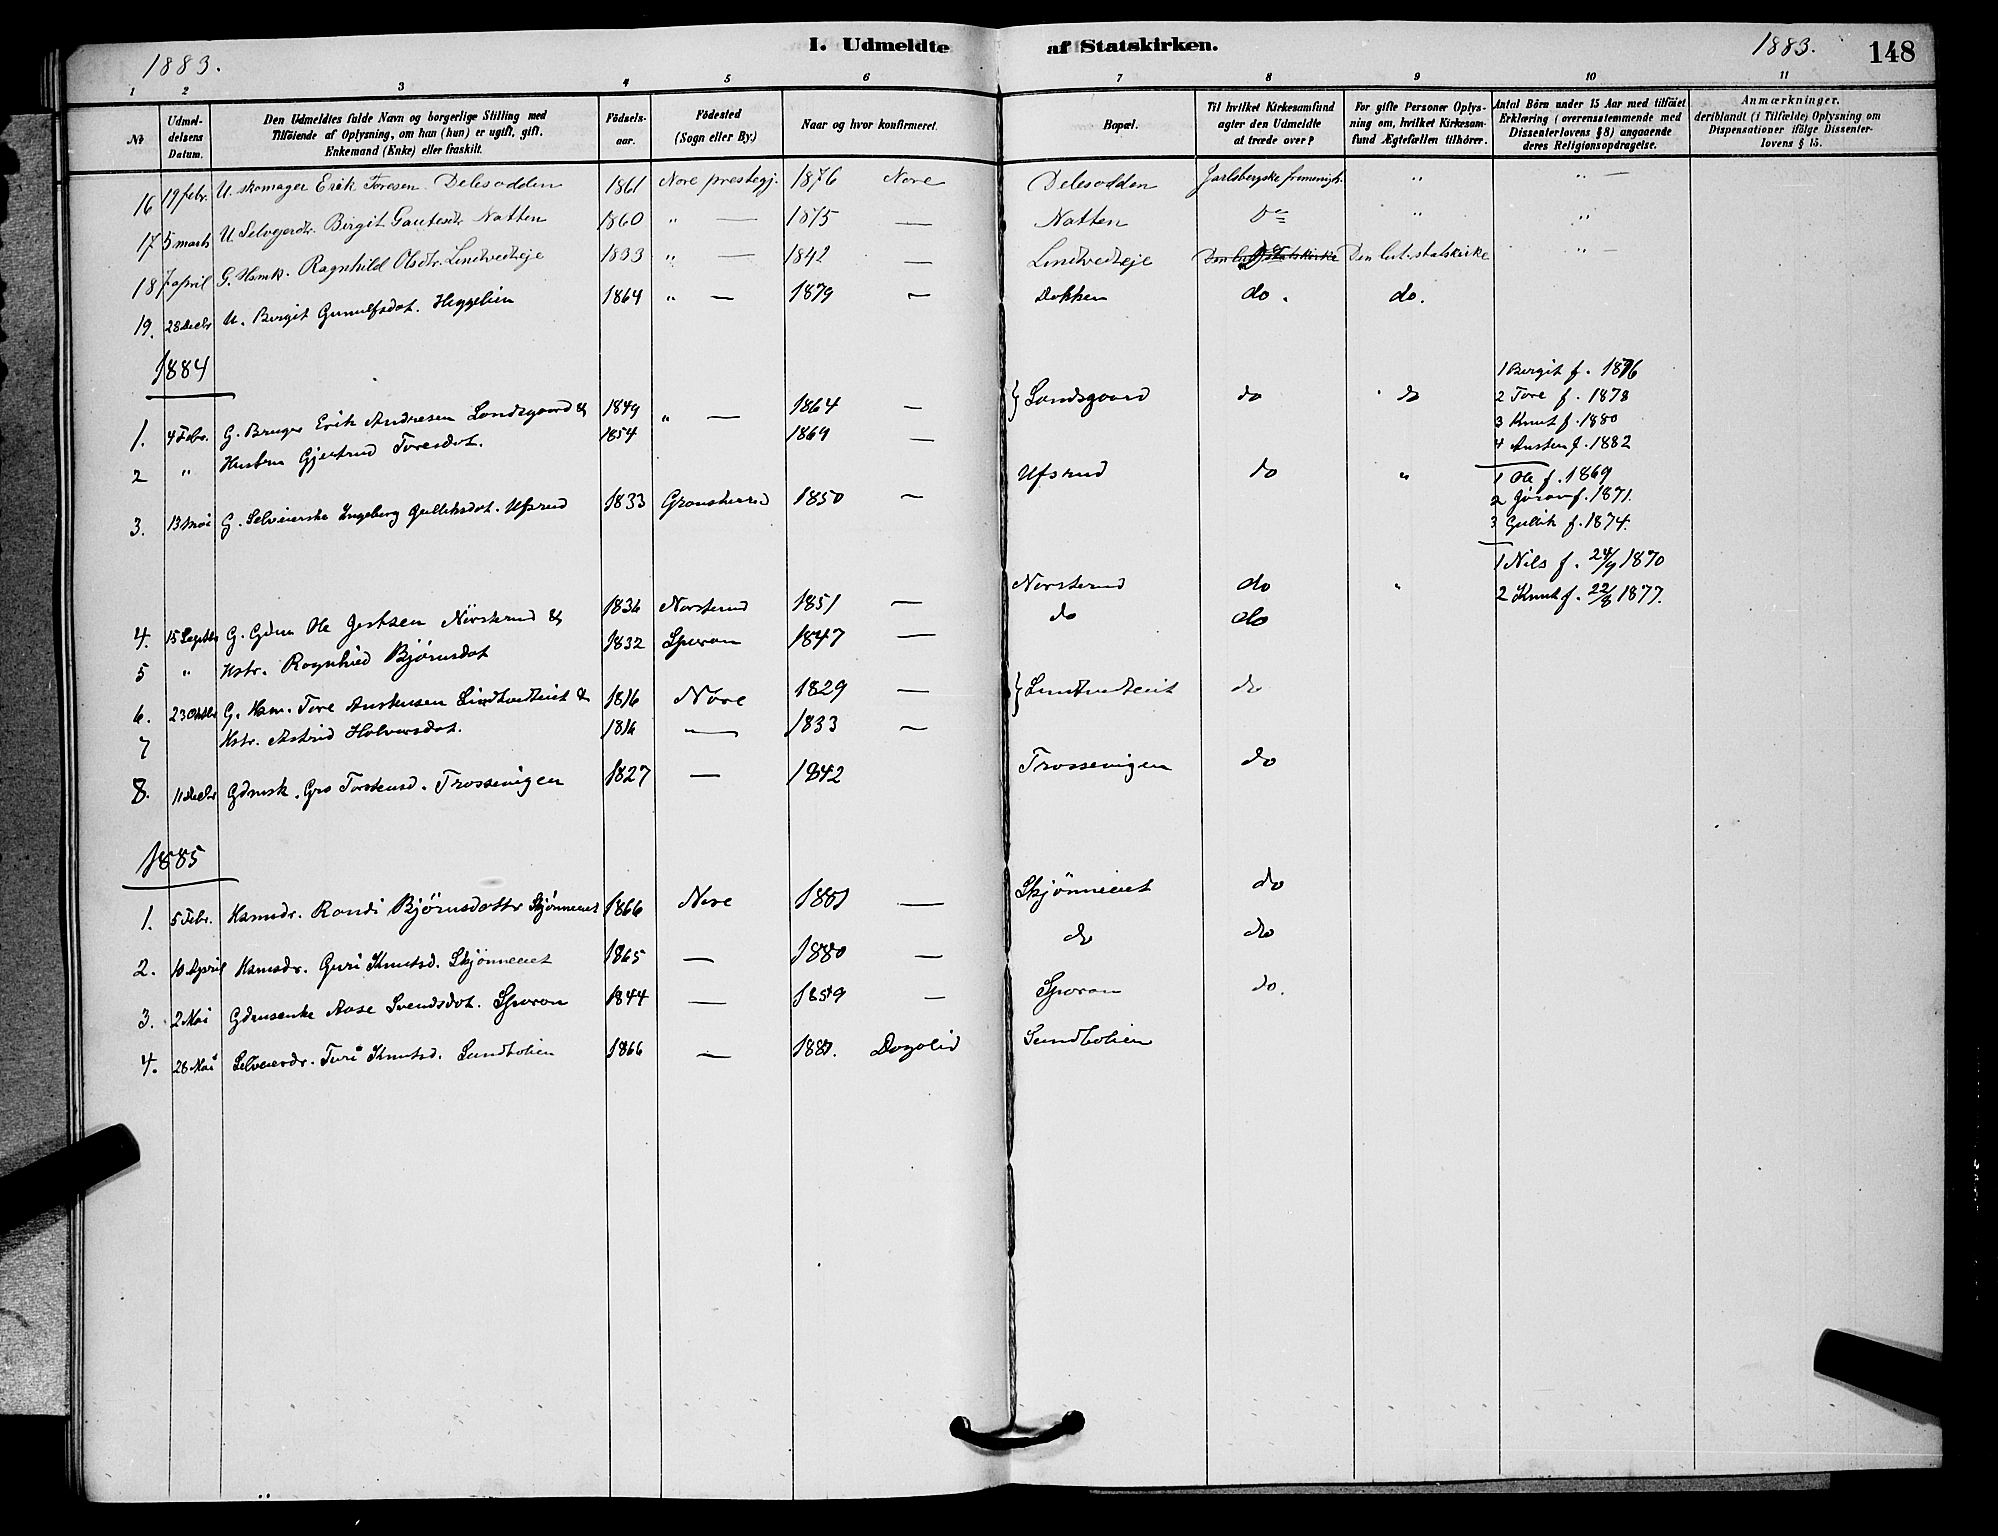 1883.
I. Udmeldte af Statskirken.
1883.
148
1 2 3 4 5 6 7 8 9 10 11
No
Udmel-
delsens
Datum.
Den Udmeldtes fulde Navn og borgerlige Stilling med
Tilföiende af Oplysning, om han (hun) er ugift, gift,
Enkemand (Enke) eller fraskilt.
Födsels-
aar.
Födested
(Sogn eller By.)
Naar og hvor konfirmeret.
Bopæl.
Til hvilket Kirkesamfund
agter den Udmeldte
at træde over?
For gifte Personer Oplys-
ning om, hvilket Kirkesam-
fund Ægtefællen tilhörer.
Antal Börn under 15 Aar med tilföiet
Erklæring (overensstemmende med
Dissenterlovens § 8) angaaende
deres Religionsopdragelse.
Anmærkninger,
deriblandt (i Tilfælde) Oplysning om
Dispensationer ifölge Dissenter-
lovens § 15.
16 19 febr. U. skomager Erik Toresen Delesodden 1861 Nore prestegj. 1876 Nore Delesodden Jarlsbergske frimenigh. " " —
17 5 marts U. Selvejerdtr. Birgit Gautesdtr. Natten 1860 " — 1875 — Natten do " "
18 7 april G. Hsmk. Ragnhild Olsdtr. Lindvedteje 1833 " — 1842 — Lindvedteje Den lut. statskirke do Den lut. statskirke " —
19. 28 Decbr U. Birgit Gunulfsdat. Heggelien 1864 " — 1879 — Dokken do. do.
1884
1. 4 Febr. G. Bruger Erik Andresen Landsgaard & 1849 " — 1864 — } Landsgaard do do
2 " Hustru Gjertrud Toresdat. 1854 1869 —
1 Birgit f. 1876
2 Tore f. 1878
3 Knut f. 1880
4 Austen f. 1882
3. 13 Mai G. Selveierske Ingeborg Gulleksdat. Ufsrud 1833 Gransherred 1850 — Ufsrud do "
1 Ole f. 1869
2 Jøran f. 1871.
3 Gulik f. 1874.
4. 15 Septbr G. Gdm Ole Jertsen Nørsterud & 1836 Norsterud 1851 — Norsterud do "
5 " Hstr. Ragnhild Bjørnsdat 1832 Sporan 1847 — do do
1 Nils f. 24/9 1870
2 Knut f. 22/8 1877.
6. 23 Oktbr G. Hsm. Tore Austensen Lindtvedteiet & 1816 Nore 1829 — } Lindtvedteiet do
7 Hstr. Astrid Halvorsdat. 1816 " — 1833 —
8. 11 Decbr Gdmsk. Gro Torstensd. Trossevigen 1827 — 1842 Trossevigen do
1885
1. 5 Febr. Hsmdr. Randi Bjørnsdatter Skjønneeiet 1866 Nore 1881 — Skjønneeiet do
2. 10 April Hsmsdr. Guri Knutsd. Skjønneeiet 1865 — 1880 — do do
3. 2 Mai Gdmsenke Aase Svendsdat. Sporan 1844 — 1859 — Sporan do.
4. 26 Mai Selveierdr. Turi Knutsd. Sundtolien 1866 — 1881. Dagalid Sundtolien